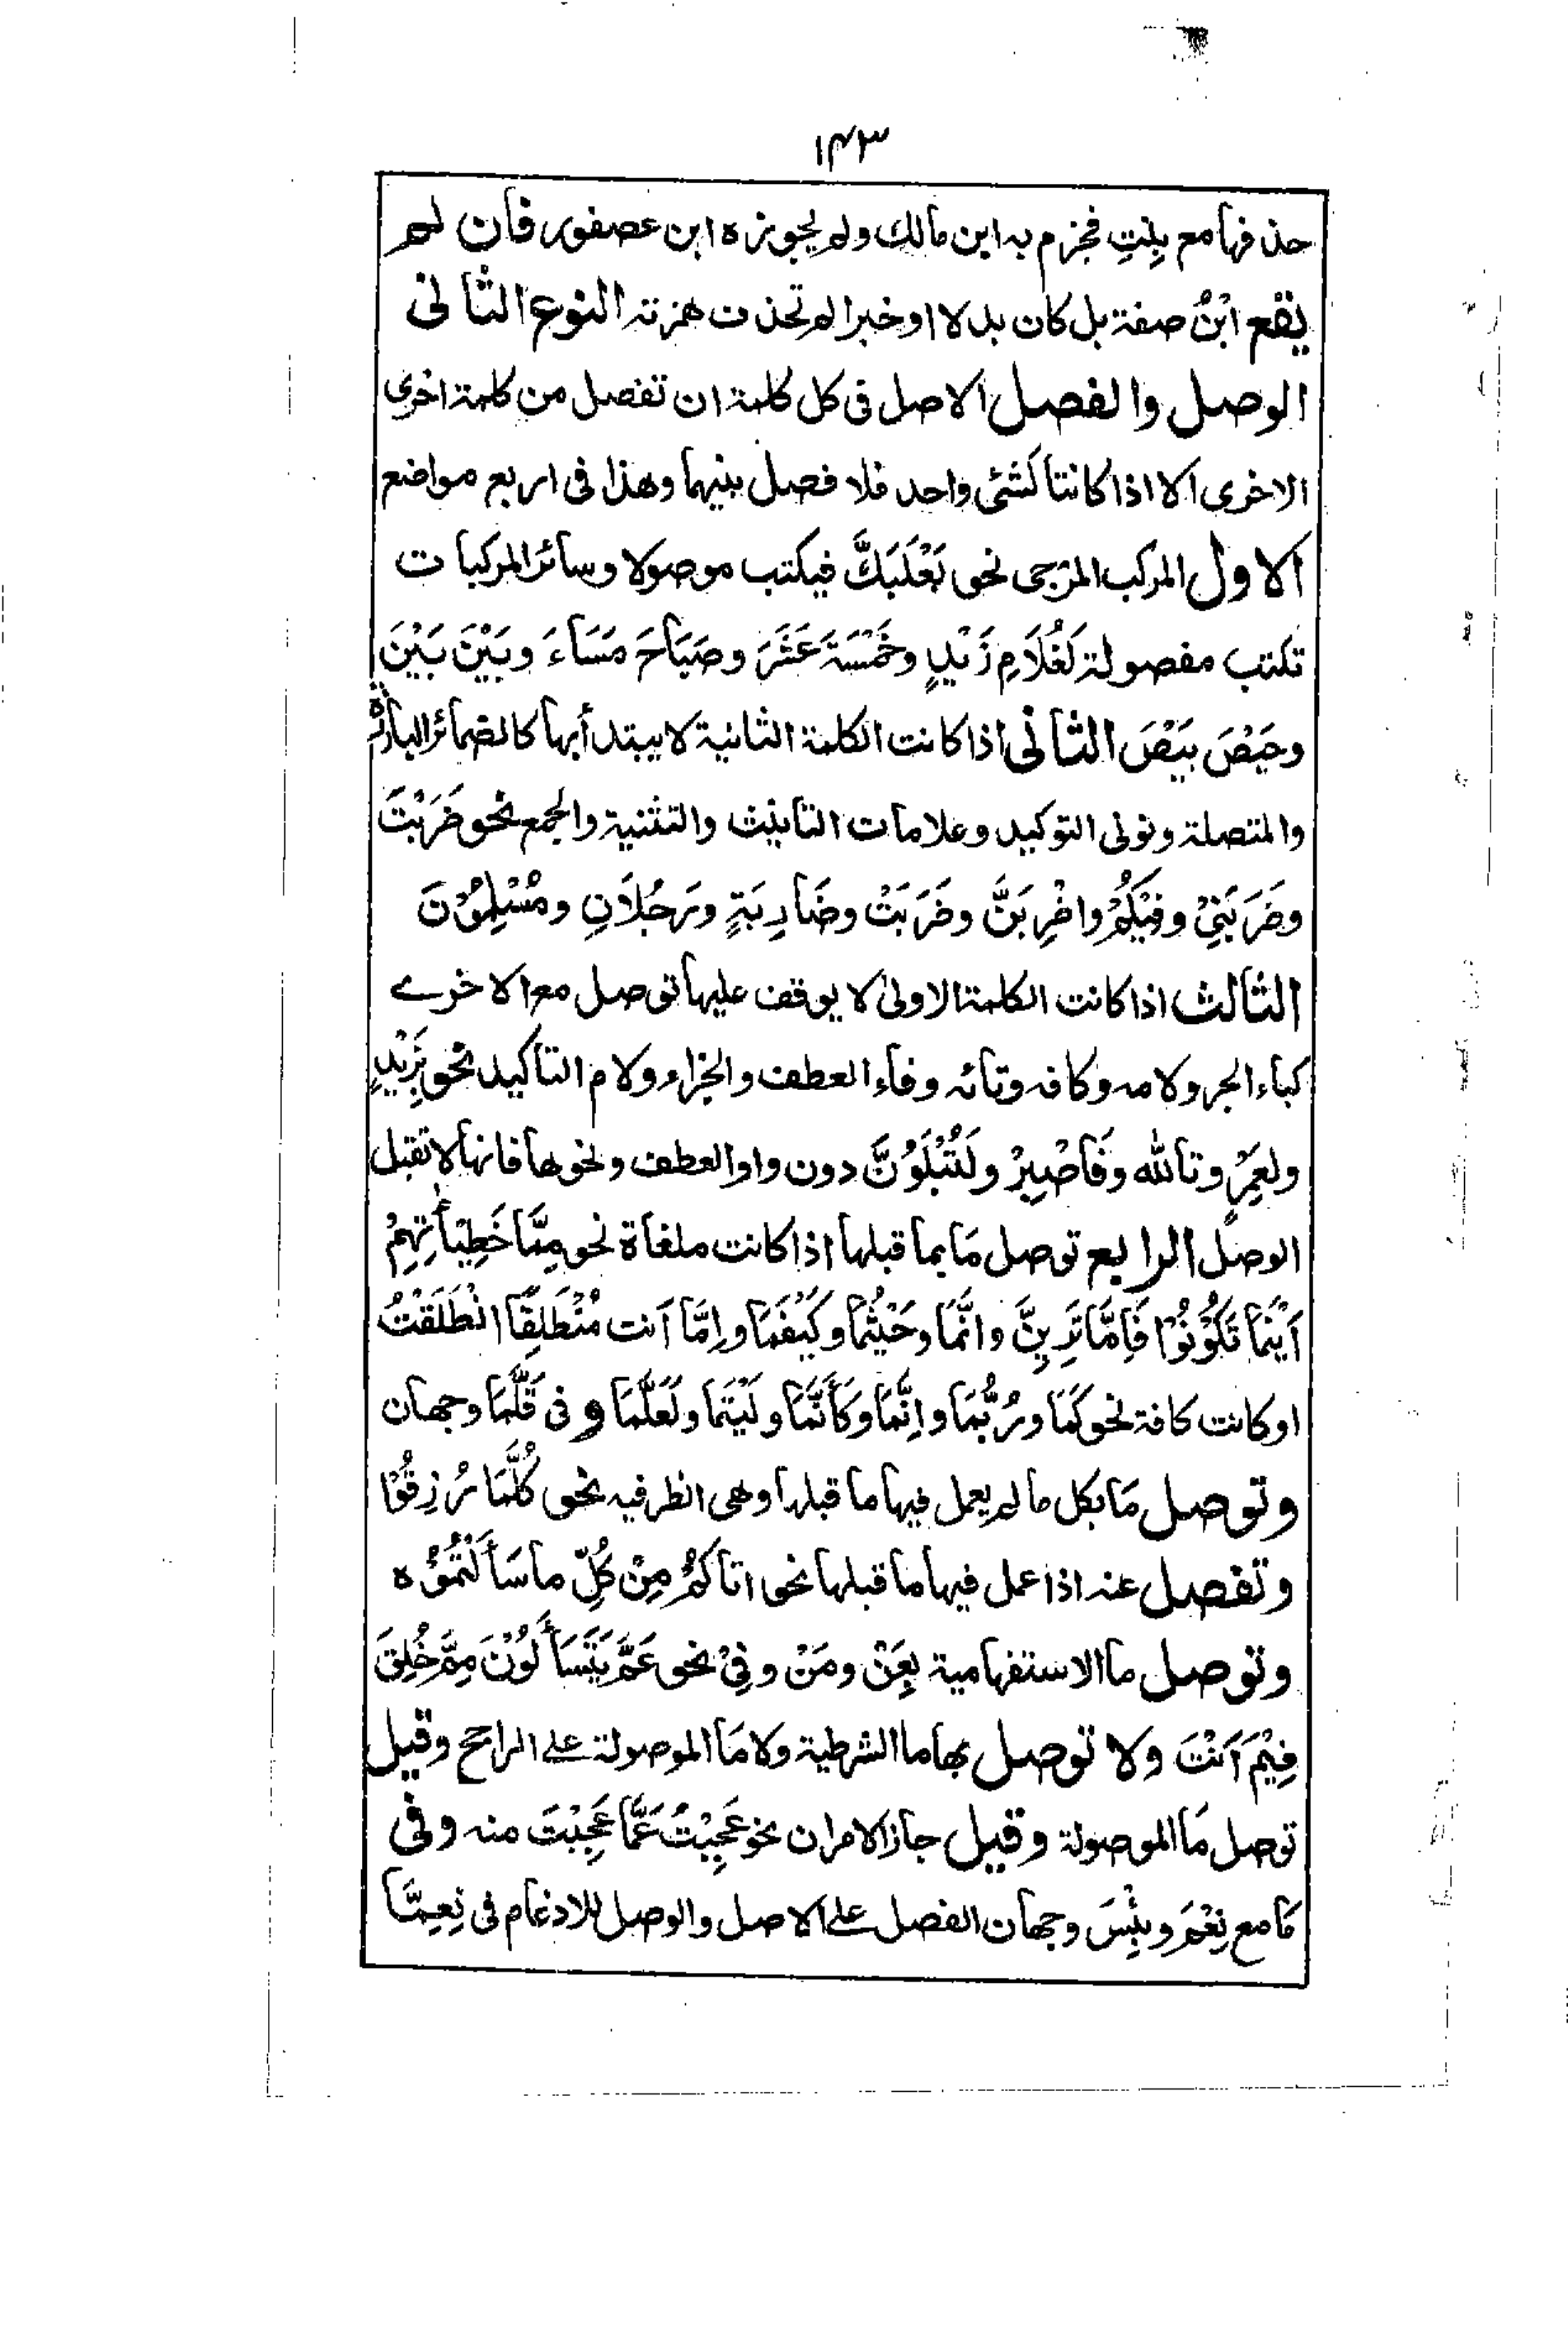 ۱۴۳
حذفها مع بِنْتٍ فجزم به ابن مالك ولم يجوزه ابن عصفور فان لم
يقع ابْنٌ صفة بل كان بدلا او خبرا لم تحذف همزته النوع الثانی
الوصل والفصل الاصل فی كل كلمة ان تفصل من كلمة اخری
الاخری الا اذا كانتا كشئ واحد فلا فصل بينهما وهذا فی اربع مواضع
الاول المركب المزجی نحو بَعْلَبَكَّ فيكتب موصولا وسائر المركبات
تكتب مفصولة كَغُلَامِ زَيْدٍ وخَمْسَةَ عَشَرَ وصَبَاحَ مَسَاءَ وبَيْنَ بَيْنَ
وحَيْصَ بَيْصَ الثانی اذا كانت الكلمة الثانية لا يبتدأ بها كالضمائر البارزة
والمتصلة ونونی التوكيد وعلامات التانيث والتثنية والجمع نحو ضَرَبْتَ
وضَرَبَنِیْ وفِيْكُمْ واضْرِبَنَّ وضَرَبَتْ وضَارِبَةٍ ورَجُلَانِ ومُسْلِمُوْنَ
الثالث اذا كانت الكلمة الاولی لا يوقف عليها توصل مع الاخرے
كباء الجر ولامه وكافه وتائه وفاء العطف والجزاء ولام التاكيد نحو بِزَيْدٍ
ولعمرٍ وتالله وفَاصْبِرْ ولَتُبْلَوُنَّ دون واو العطف ونحوها فانها لا تقبل
الوصل الرابع توصل مَا بما قبلها اذا كانت ملغاة نحو مِمَّا خَطِيْأٰتِهِمْ
اَيْنَمَا تَكُوْنُوْا فَاِمَّا تَرَيِنَّ وانَّمَا وحَيْثُمَا وكَيْفَمَا واِمَّا اَنت مُنْطَلِقًا انْطَلَقْتُ
او كانت كافة نحو كَمَا ورُبَّمَا واِنَّمَا وكَأَنَّمَا ولَيْتَمَا ولَعَلَّمَا و فی قَلَّمَا وجهان
وتوصل مَا بكل ما لم يعمل فيها ما قبلها وهی الظرفيه نحو كُلَّمَا رُزِقُوْا
وتفصل عنه اذا عمل فيها ما قبلها نحو اتاكُمْ مِنْ كُلِّ ما سَأَلْتُمُوْه
وتوصل ما الاستفهامية بِعَنْ ومَنْ وفِیْ نحو عَمَّ يَتَسَأَلُوْنَ مِمَّ خُلِقَ
فِيْمَ اَنْتَ ولا توصل بها ما الشرطية ولا مَا الموصولة علے الراجح وقيل
توصل مَا الموصولة وقيل جاز الامران نحو عَجِبْتُ عَمَّا عَجِبْتَ منه وفی
مَا مع نِعْمَ وبِئْسَ وجهان الفصل علے الاصل والوصل للادغام فی نِعِمَّا